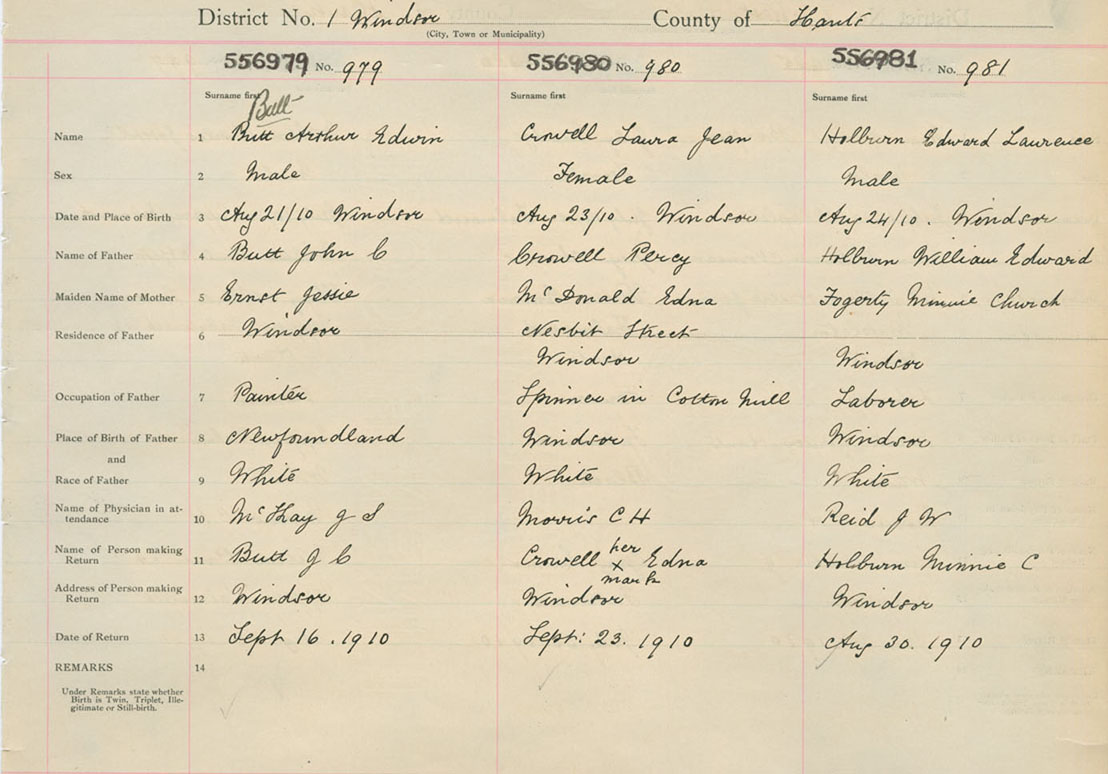 District No. 1 Windsor County of Hants
(City, Town or Municipality)
556979 No. 979 556980 No. 980 556981 No. 981
Surname first Surname first Surname first
Butt
Name 1 Butt Arthur Edwin Crowell Laura Jean Holburn Edward Lawrence
Sex 2 Male Female Male
Date and Place of Birth 3 Aug 21/10 Windsor Aug 23/10. Windsor Aug 24/10. Windsor
Name of Father 4 Butt John C Crowell Percy Holburn William Edward
Maiden Name of Mother 5 Ernst Jessie McDonald Edna Fogerty Minnie Church
Residence of Father 6 Windsor Nesbit Street
Windsor Windsor
Occupation of Father 7 Painter Spinner in Cotton Mill Laborer
Place of Birth of Father 8 Newfoundland Windsor Windsor
and
Race of Father 9 White White White
Name of Physician in at-
tendance 10 J S Morris C H Reid J W
Name of Person making
Return 11 Butt J C Crowell her x mark Edna Holburn Minnie C
Address of Person making
Return 12 Windsor Windsor Windsor
Date of Return 13 Sept 16. 1910 Sept: 23. 1910 Aug 30. 1910
REMARKS 14
Under Remarks state whether
Birth is Twin, Triplet, Ille-
gitimate or Still-birth.